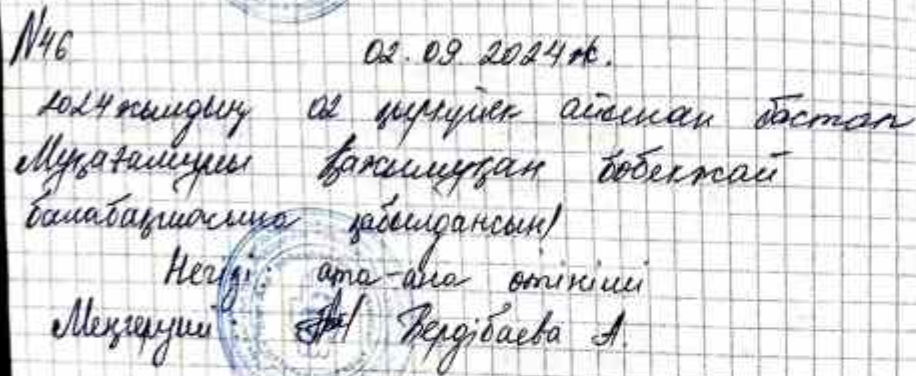 №46 02.09.2024ж.
2024 жылдың 02 қыркүйек айынан бастап
Мұқағалиұлы Қажымұқан бөбекжай
балабақшасына қабылдансын!
Негізі: ата-ана өтініші
Меңгеруші Бердібаева А.